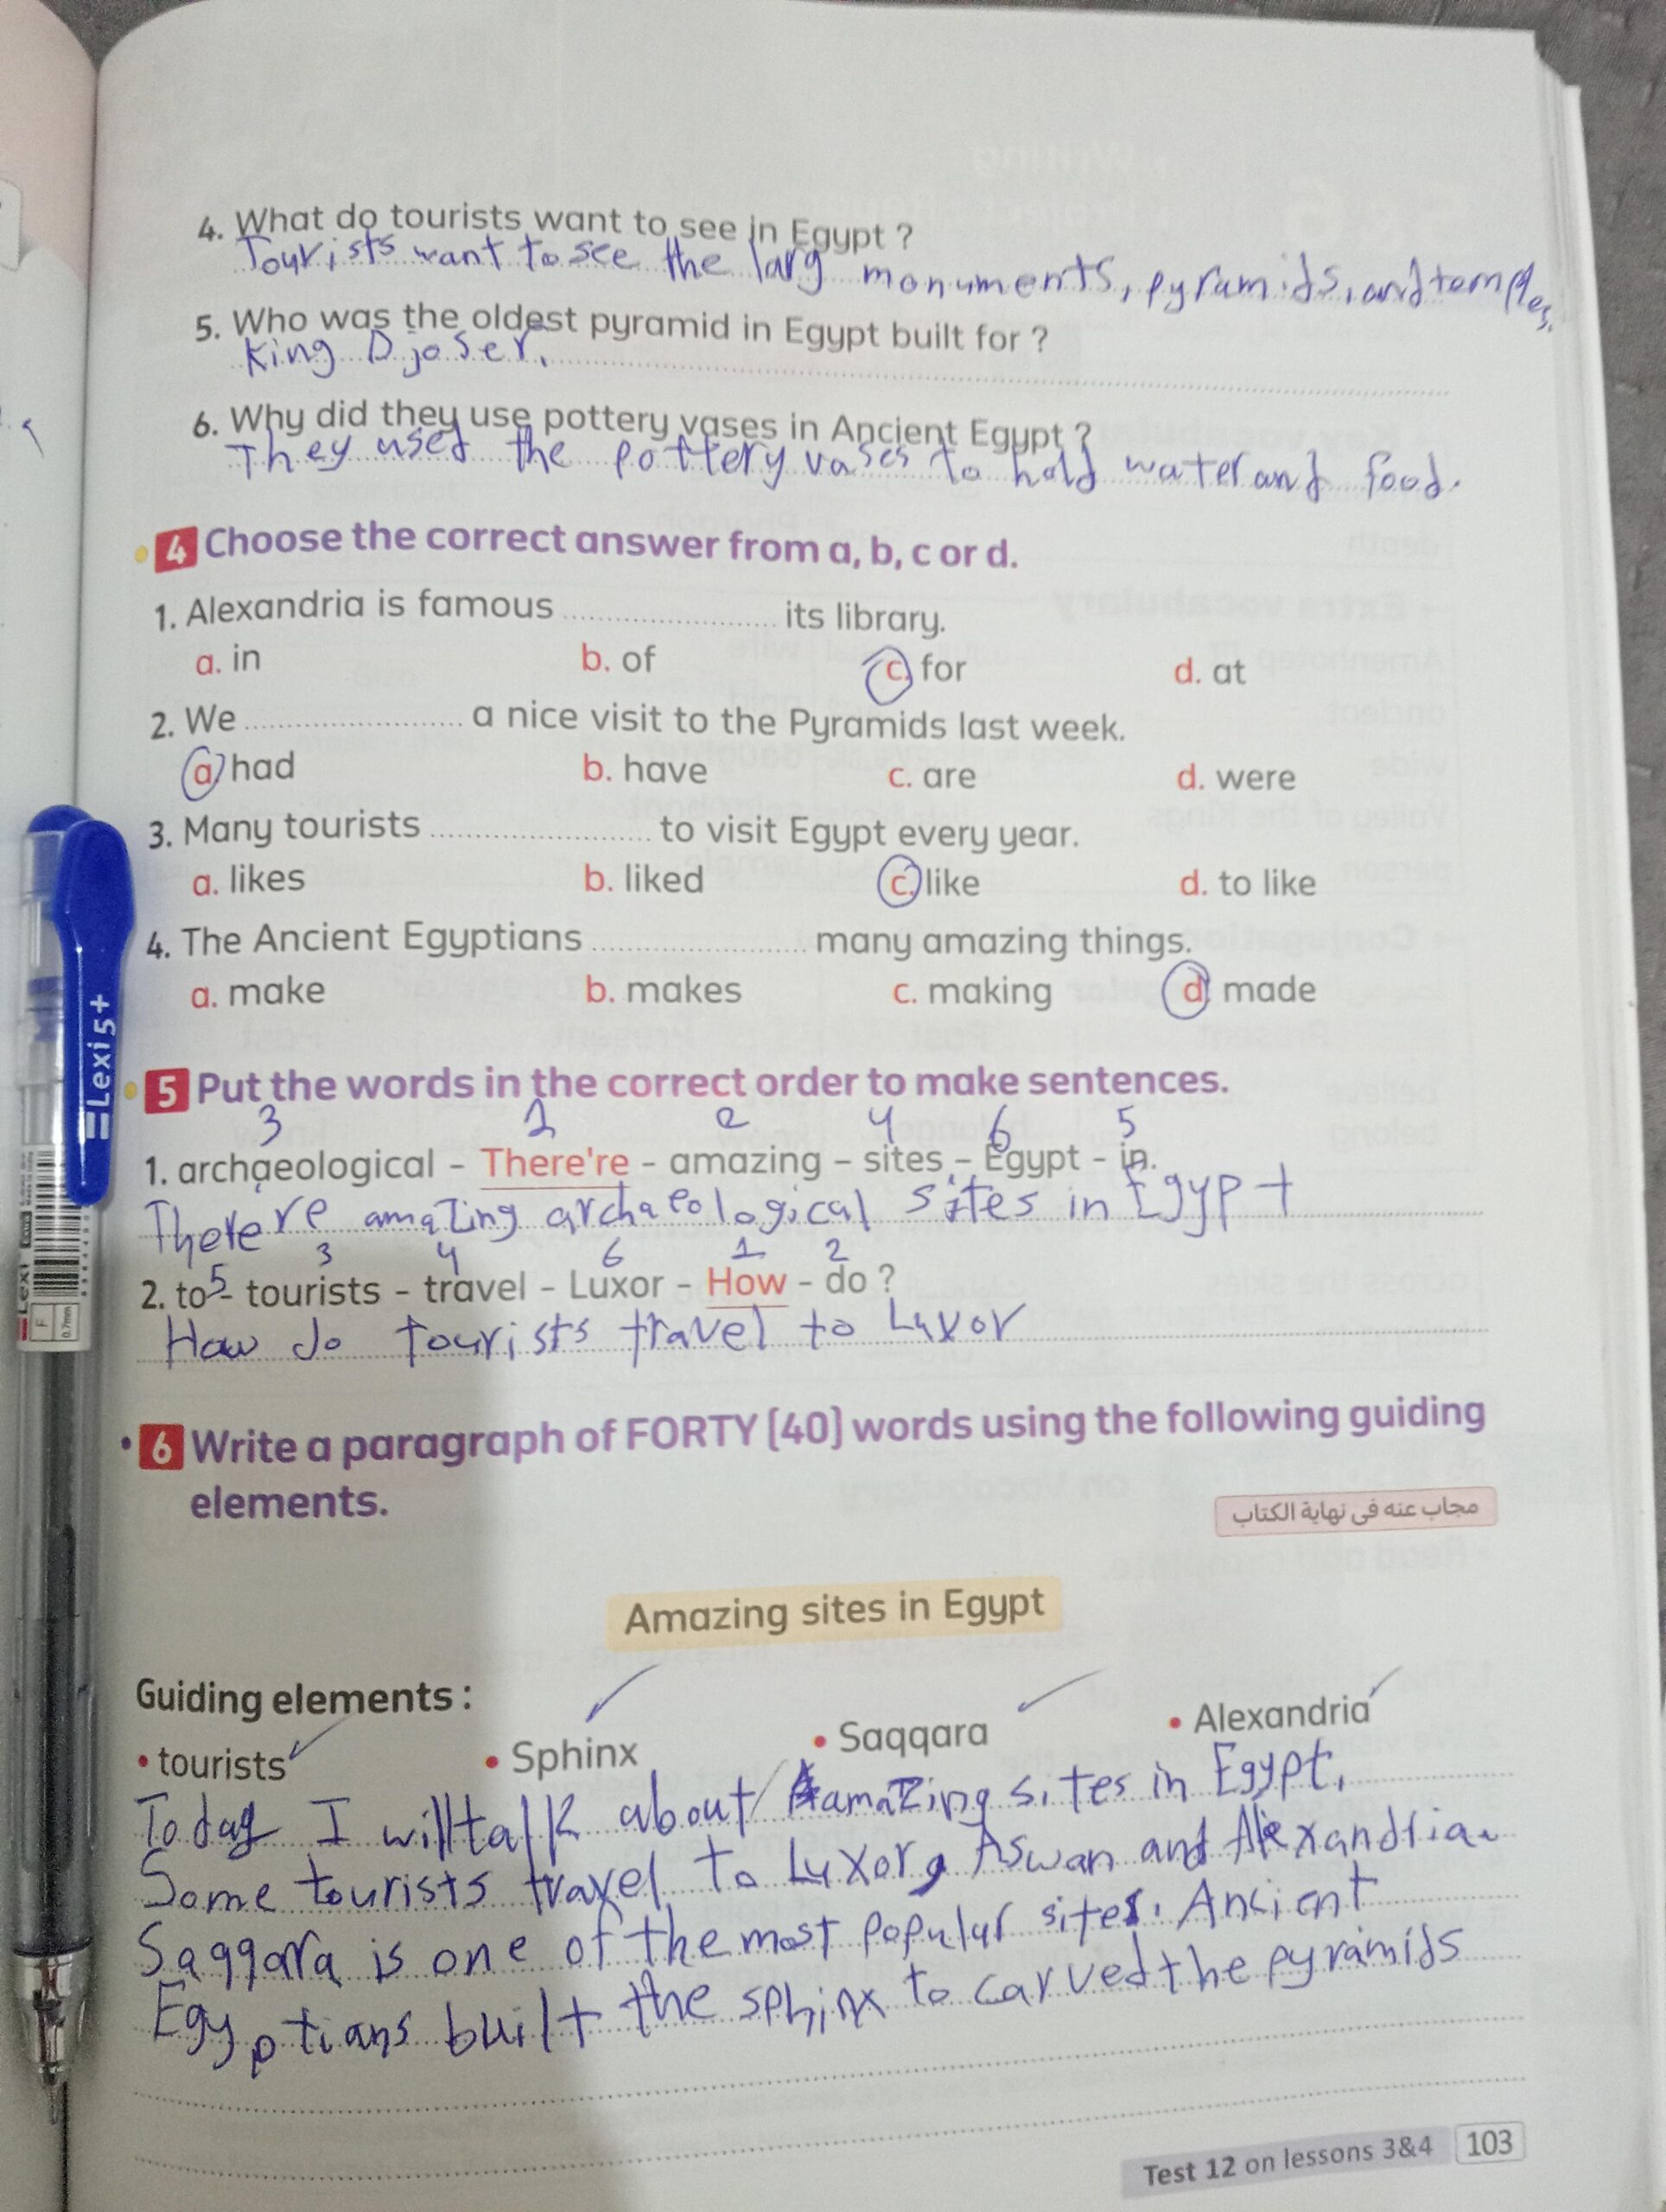 4. What do tourists want to see in Egypt ?
Tourists want to see the larg monuments, pyramids, and temples.
5. Who was the oldest pyramid in Egypt built for ?
King Djoser.
6. Why did they use pottery vases in Ancient Egypt ?
They used the pottery vases to hold water and food.
4 Choose the correct answer from a, b, c or d.
1. Alexandria is famous .................... its library.
a. in b. of c. for d. at
2. We .................... a nice visit to the Pyramids last week.
a. had b. have c. are d. were
3. Many tourists .................... to visit Egypt every year.
a. likes b. liked c. like d. to like
4. The Ancient Egyptians .................... many amazing things.
a. make b. makes c. making d. made
5 Put the words in the correct order to make sentences.
3 1 2 4 6 5
1. archaeological - There're - amazing - sites - Egypt - in.
There're amazing archaeological sites in Egypt
5 3 4 6 1 2
2. to - tourists - travel - Luxor - How - do ?
How do tourists travel to Luxor
6 Write a paragraph of FORTY (40) words using the following guiding
elements.
مجاب عنه فى نهاية الكتاب
Amazing sites in Egypt
Guiding elements :
• tourists • Sphinx • Saqqara • Alexandria
Today I will talk about amazing sites in Egypt.
Some tourists travel to Luxor, Aswan and Alexandria.
Saqqara is one of the most popular sites. Ancient
Egyptians built the sphinx to carved the pyramids
Test 12 on lessons 3&4 103
=Lexi5+
Lexi
F
0.7mm